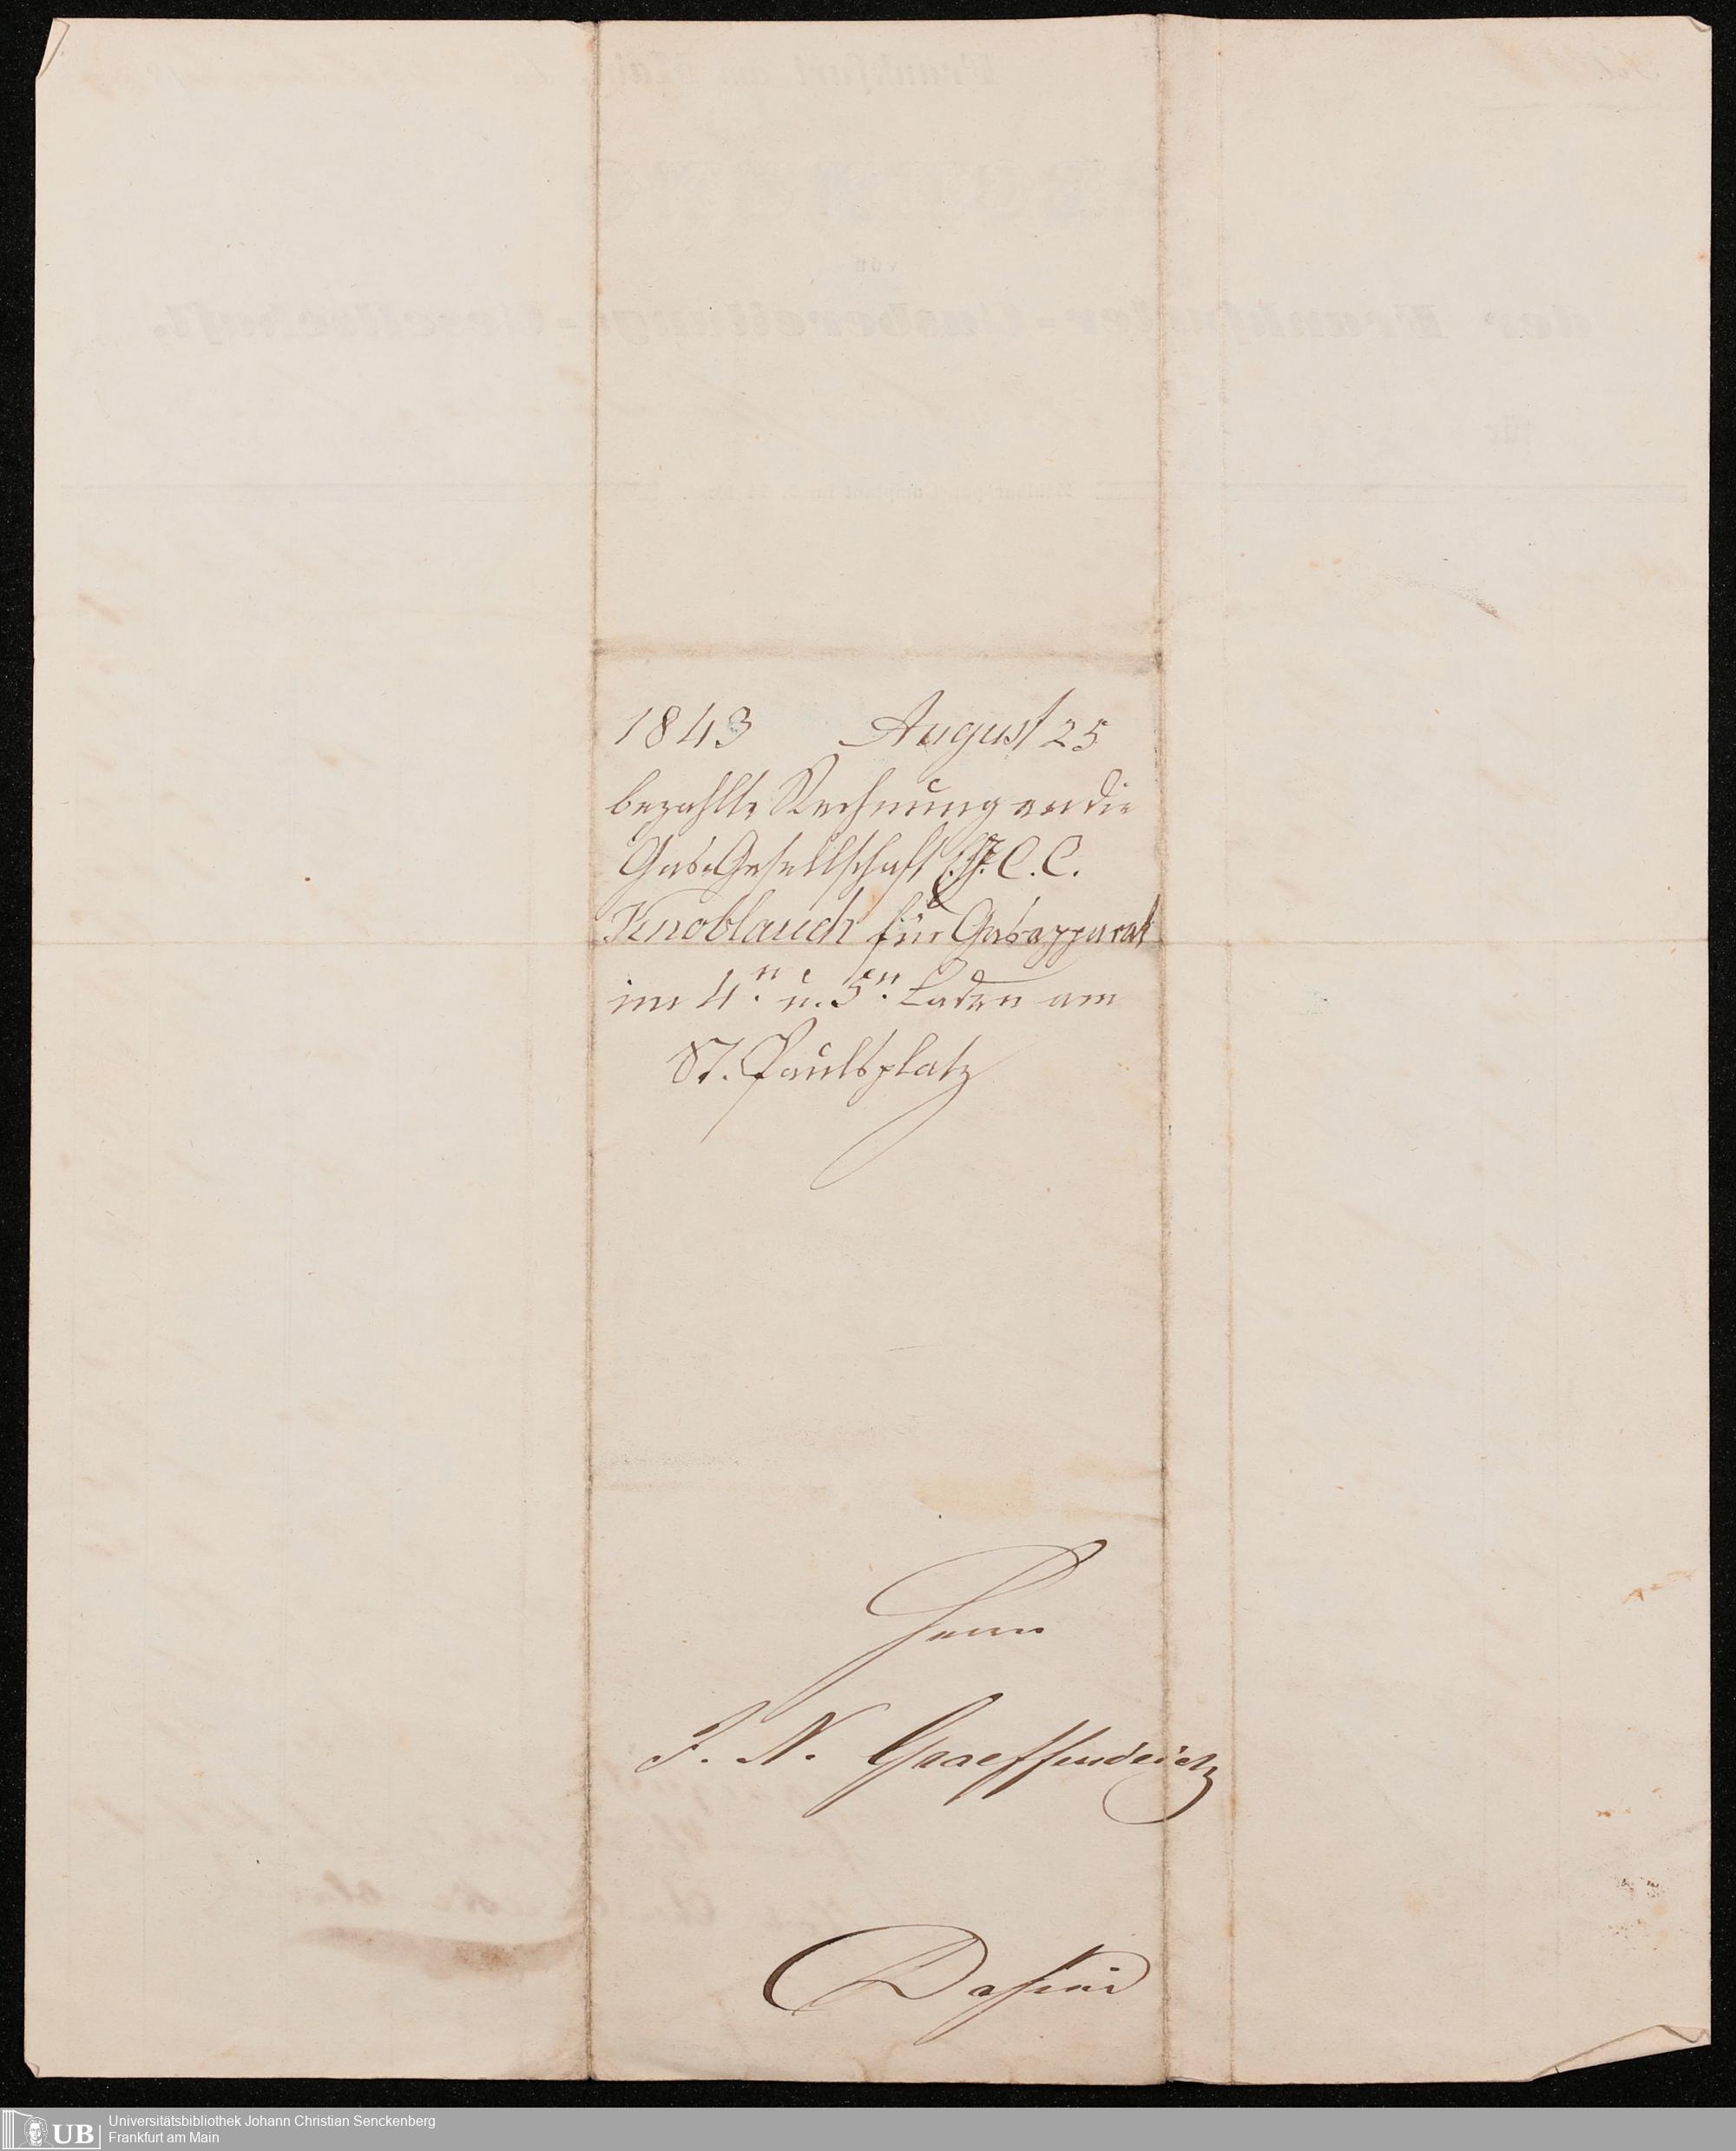 1843 August 25
bezahlte Rechnung an die
Gas-Gesellschaft J. C. C.
Knoblauch für Gasapparat
im 4n. u. 5n. Laden am
St. Paulsplatz
Herrn
J. N. Graeffendeich
Dahier
UB
Universitätsbibliothek Johann Christian Senckenberg
Frankfurt am Main